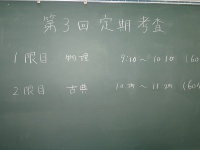 第3回定期考査
1限目 物理 9:10～10:10 (60
2限目 古典 10:25～11:25 (60